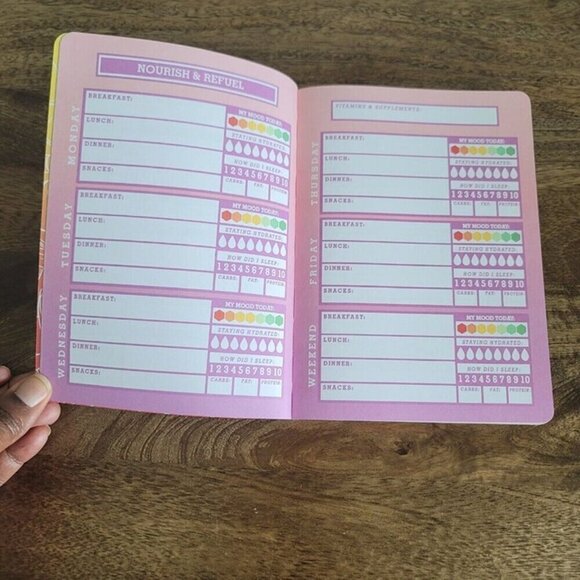 NOURISH & REFUEL
MONDAY
BREAKFAST:
LUNCH:
DINNER:
SNACKS:
MY MOOD TODAY:
STAYING HYDRATED:
HOW DID I SLEEP:
1 2 3 4 5 6 7 8 9 10
CARBS: FAT: PROTEIN:
TUESDAY
BREAKFAST:
LUNCH:
DINNER:
SNACKS:
MY MOOD TODAY:
STAYING HYDRATED:
HOW DID I SLEEP:
1 2 3 4 5 6 7 8 9 10
CARBS: FAT: PROTEIN:
WEDNESDAY
BREAKFAST:
LUNCH:
DINNER:
SNACKS:
MY MOOD TODAY:
STAYING HYDRATED:
HOW DID I SLEEP:
1 2 3 4 5 6 7 8 9 10
CARBS: FAT: PROTEIN:
VITAMINS & SUPPLEMENTS:
THURSDAY
BREAKFAST:
LUNCH:
DINNER:
SNACKS:
MY MOOD TODAY:
STAYING HYDRATED:
HOW DID I SLEEP:
1 2 3 4 5 6 7 8 9 10
CARBS: FAT: PROTEIN:
FRIDAY
BREAKFAST:
LUNCH:
DINNER:
SNACKS:
MY MOOD TODAY:
STAYING HYDRATED:
HOW DID I SLEEP:
1 2 3 4 5 6 7 8 9 10
CARBS: FAT: PROTEIN:
WEEKEND
BREAKFAST:
LUNCH:
DINNER:
SNACKS:
MY MOOD TODAY:
STAYING HYDRATED:
HOW DID I SLEEP:
1 2 3 4 5 6 7 8 9 10
CARBS: FAT: PROTEIN: